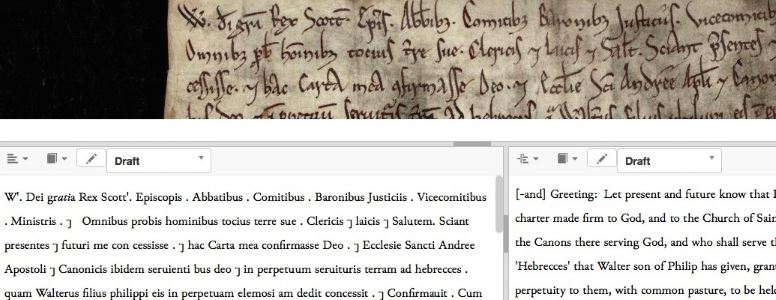 W. di gra Rex Scott. Epis. Abbibz. Comitibz Baronibz Justiciis. vicecomitib
Omnibz pb hominibz tocius tre sue. Clericis ⁊ laicis ⁊ Salt. Sciant psentes ⁊
cessisse. ⁊ hac Carta mea afirmasse Deo. ⁊ Ecclie Sci Andree Apli ⁊ Canon
Draft
Draft
W'. Dei gratia Rex Scott'. Episcopis . Abbatibus . Comitibus . Baronibus Justiciis . Vicecomitibus
. Ministris . ⁊ Omnibus probis hominibus tocius terre sue . Clericis ⁊ laicis ⁊ Salutem. Sciant
presentes ⁊ futuri me con cessisse . ⁊ hac Carta mea confirmasse Deo . ⁊ Ecclesie Sancti Andree
Apostoli ⁊ Canonicis ibidem seruienti bus deo ⁊ in perpetuum seruituris terram ad hebrecces .
quam Walterus filius philippi eis in perpetuam elemosi am dedit concessit . ⁊ Confirmauit . Cum
[-and] Greeting: Let present and future know that I
charter made firm to God, and to the Church of Sain
the Canons there serving God, and who shall serve th
'Hebrecces' that Walter son of Philip has given, grant
perpetuity to them, with common pasture, to be held